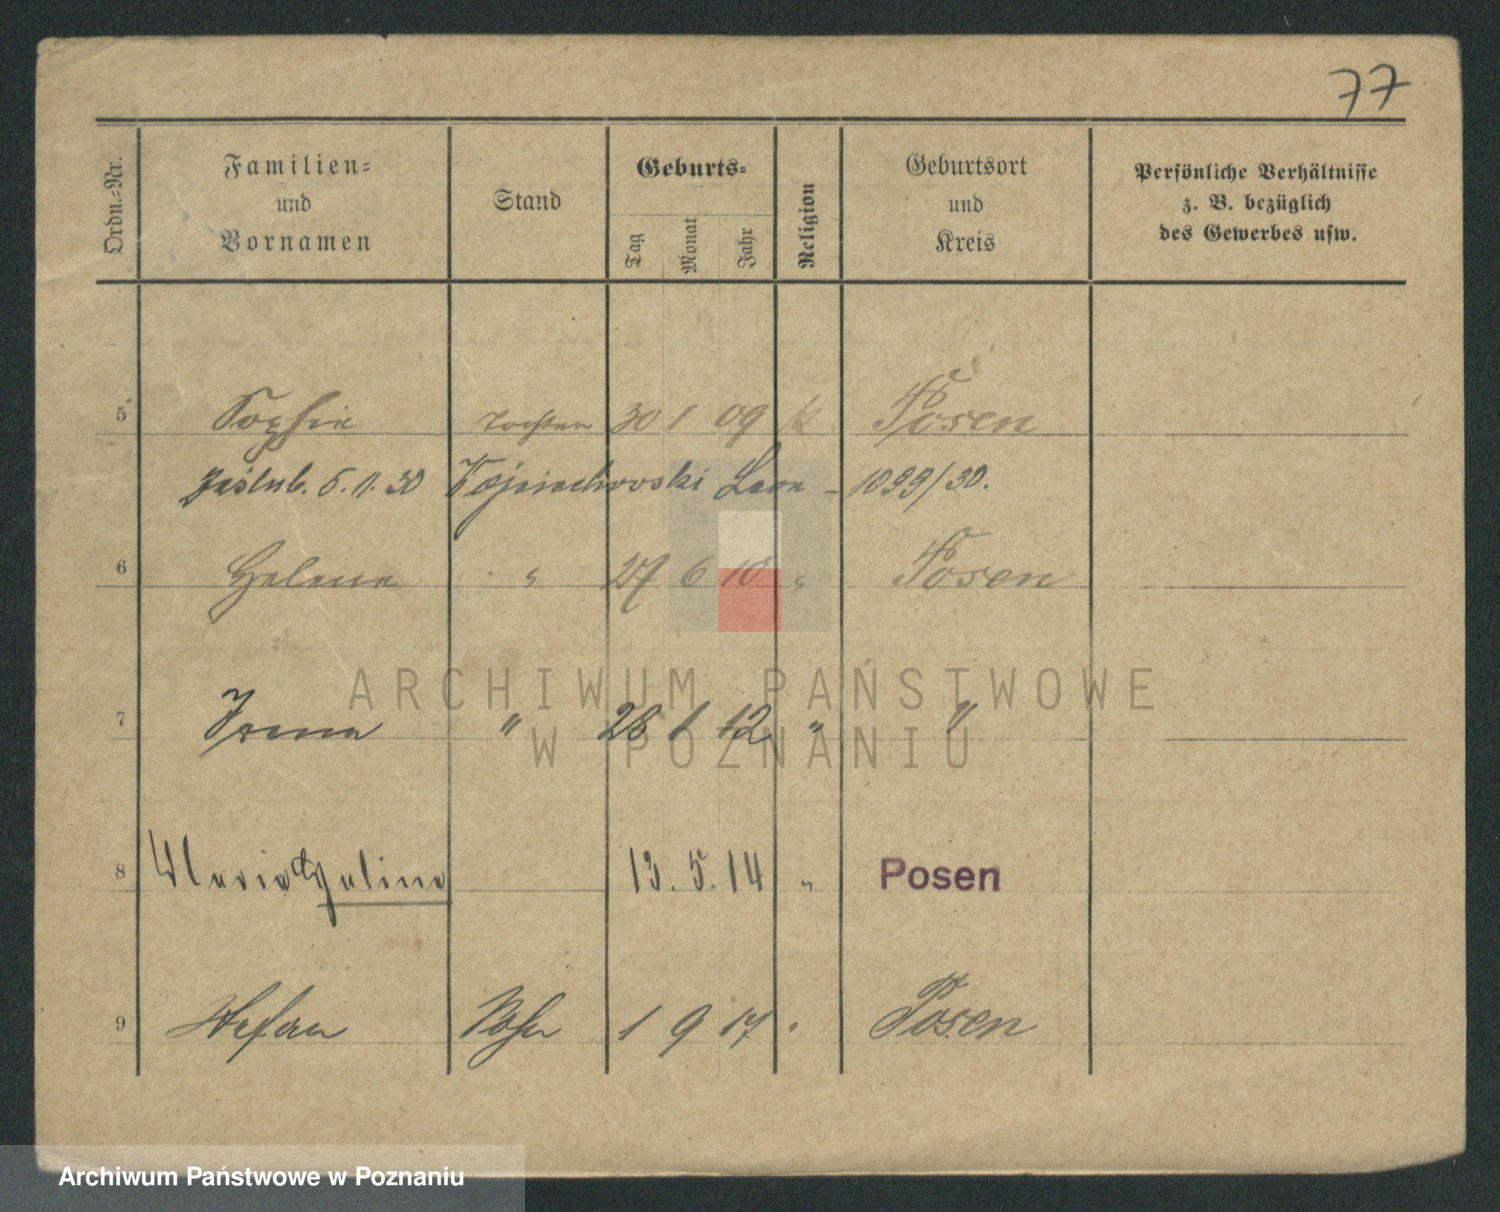 77
Ordn.-Nr. Familien- und Vornamen Stand Geburts- Tag Monat Jahr Religion Geburtsort und Kreis Persönliche Verhältnisse z. B. bezüglich des Gewerbes usw.
5 Sophie Tochter 30 1 09 k Posen
Zaślub. 5.1.30 Wojciechowski Leon - 1099/30.
6 Helene " 27 6 10 " Posen
ARCHIWUM PAŃSTWOWE
7 Irena " 28 1 12 " "
W POZNANIU
8 Maria Halina 13. 5. 14 " Posen
9 Stefan Sohn 1 9 17 " Posen
Archiwum Państwowe w Poznaniu